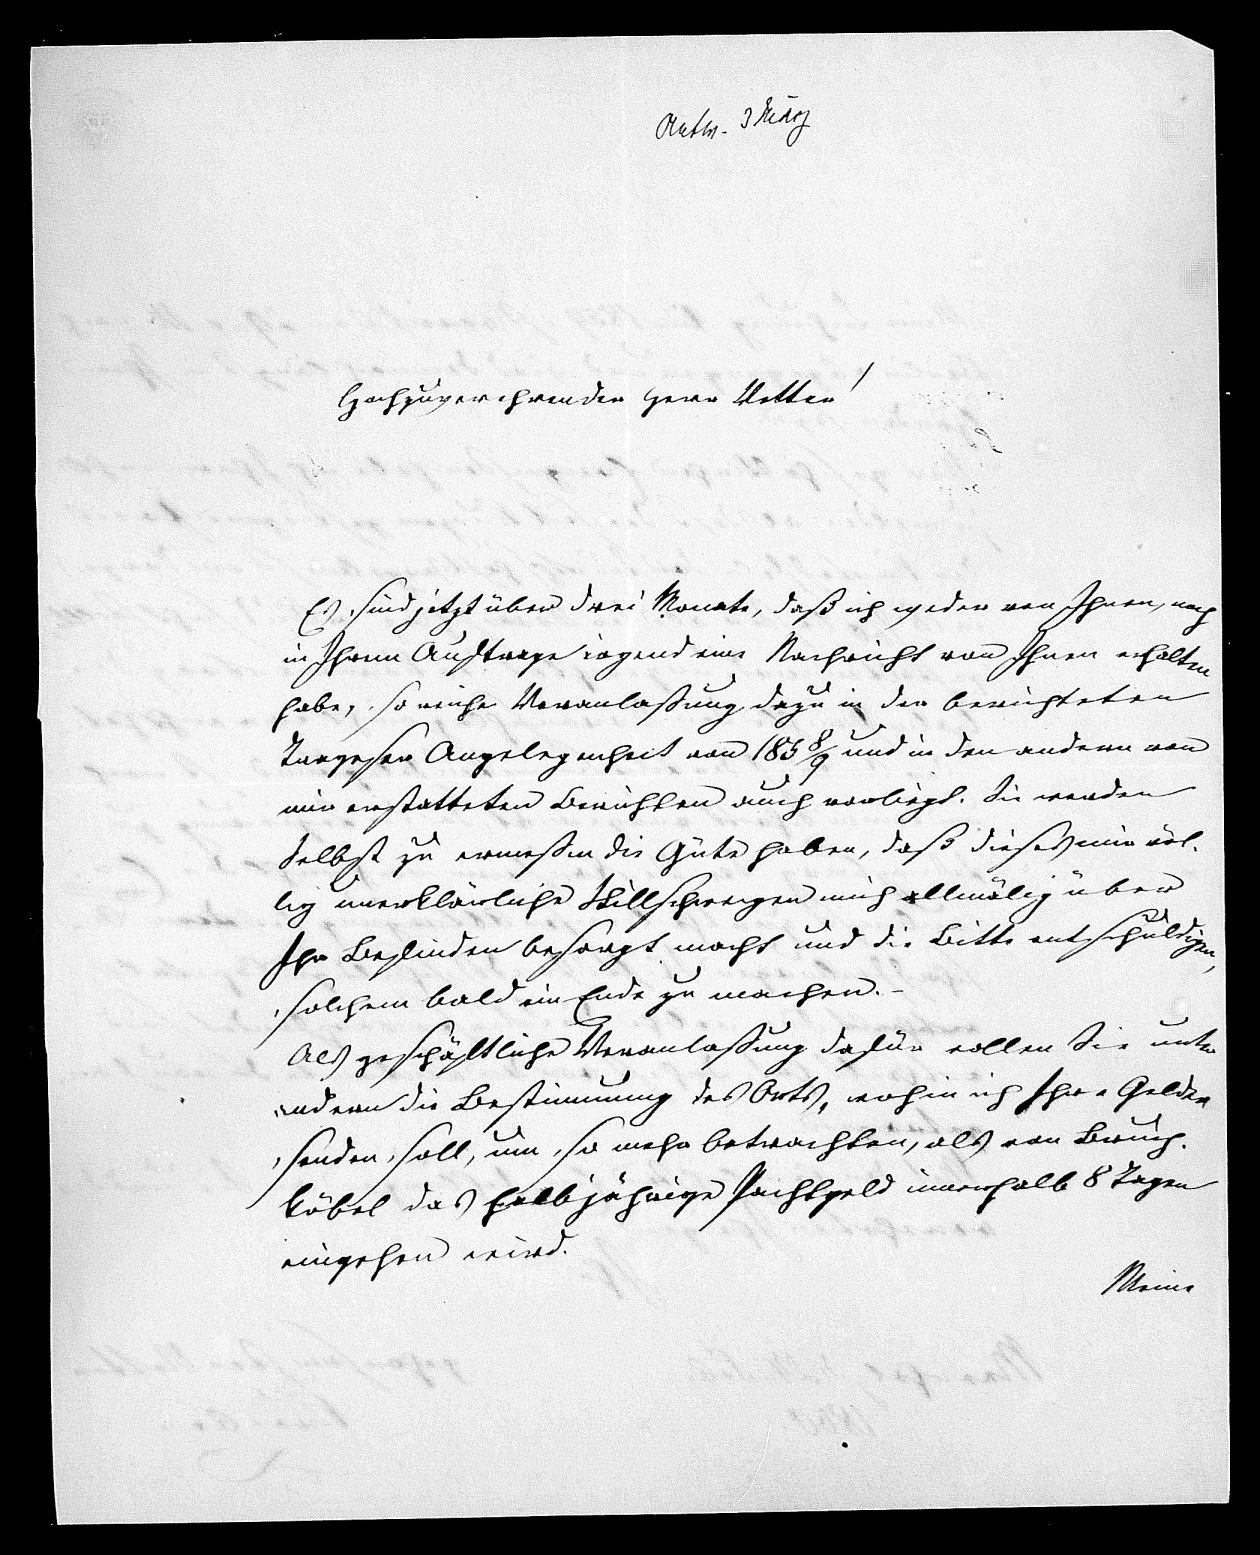 Antw. 3 März
Hochzuverehrender Herr Vetter!
Es sind jetzt über drei Monate, daß ich weder von Ihnen, noch
in Ihrem Auftrage irgend eine Nachricht von Ihnen erhalten
habe, so reiche Veranlaßung dazu in der berichteten
Angelegenheit von 185 8/9 und in den andern von
mir erstatteten Berichten auch vorliegt. Sie werden
Selbst zu ermeßen die Güte haben, daß dieses mir völ-
lig unerklärliche Stillschweigen mich allmälig über
Ihr Befinden besorgt macht und die Bitte entschuldigen,
solchem bald ein Ende zu machen. -
Als geschäftliche Veranlaßung dafür wollen Sie unter
andern die Bestimmung des Orts, wohin ich Ihre Gelder
senden soll, um so mehr betrachten, als von Bruch-
köbel das halbjährige Pachtgeld innerhalb 8 Tagen
eingehen wird.
Meine